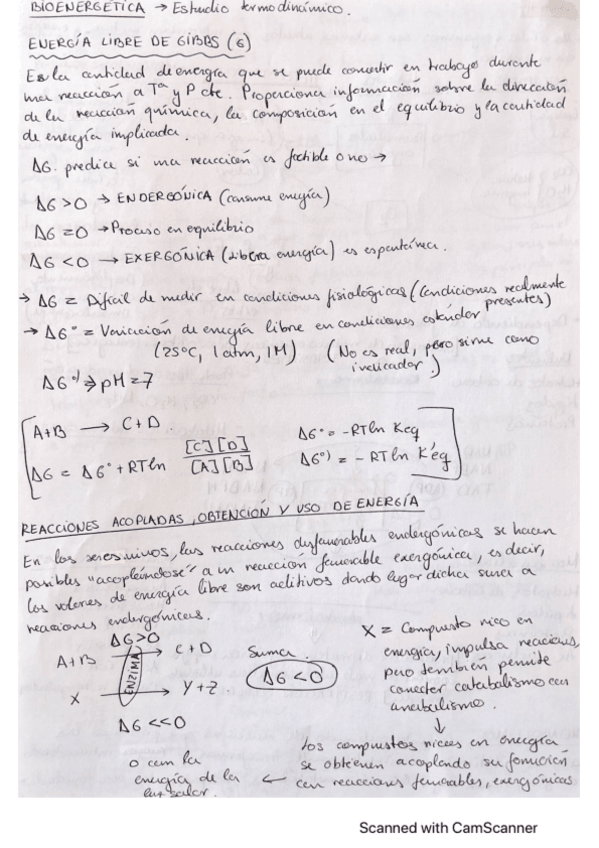 BIOENERGÉTICA → Estudio termodinámico.
ENERGÍA LIBRE DE GIBBS (G)
Es la cantidad de energía que se puede convertir en trabajos durante
una reacción a Tª y P cte. Proporciona información sobre la dirección
de la reacción química, la composición en el equilibrio y la cantidad
de energía implicada.
ΔG predice si una reacción es factible o no →
ΔG > 0 → ENDERGÓNICA (consume energía)
ΔG = 0 → Proceso en equilibrio
ΔG < 0 → EXERGÓNICA (Libera energía) es espontánea.
→ ΔG = Difícil de medir en condiciones fisiológicas (Condiciones realmente
presentes)
→ ΔG° = Variación de energía libre en condiciones estándar
(25°C, 1 atm, 1M) (No es real, pero sirve como
indicador.)
ΔG°' ⇒ pH = 7
A+B → C+D
ΔG° = -RT ln Keq
ΔG = ΔG° + RT ln [C][D] / [A][B]
ΔG°' = - RT ln K'eq
REACCIONES ACOPLADAS, OBTENCIÓN Y USO DE ENERGÍA
En los seres vivos, las reacciones desfavorables endergónicas se hacen
posibles "acoplándose" a una reacción favorable exergónica, es decir,
los valores de energía libre son aditivos dando lugar dicha suma a
reacciones endergónicas.
ΔG>0
A+B → C+D
ENZIMA
X → Y+Z
ΔG<<0
Suma
ΔG<0
X = Compuesto rico en
energía, impulsa reacciones,
pero también permite
conectar catabolismo con
anabolismo.
↓
los compuestos ricos en energía
se obtienen acoplando su formación
con reacciones favorables, exergónicas
←
o con la
energía de la
luz solar.
Scanned with CamScanner